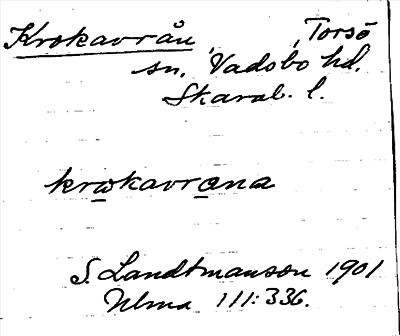 Krokavrån, , Torsö
sn. Vadsbo hd.
Skarab. l.
krokavrona
S. Landtmanson 1901
Ulma 111:336.